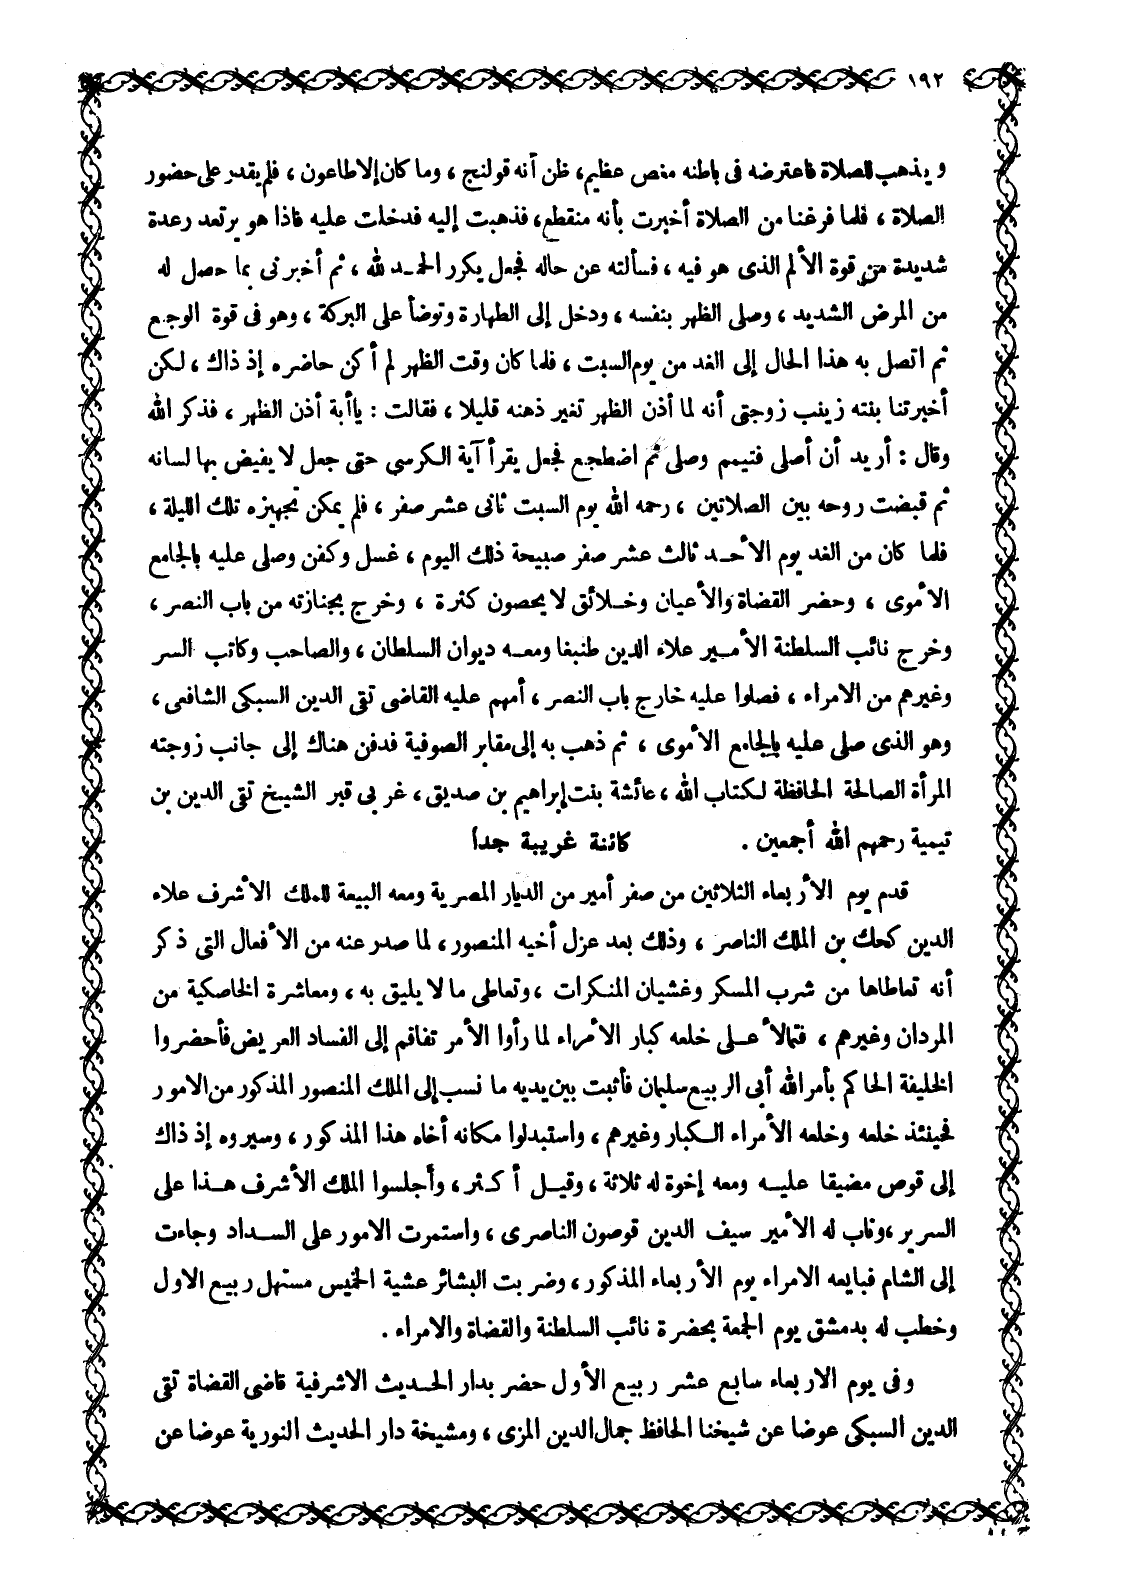 ١٩٢
ويذهب للصلاة فاعترضه فى باطنه مغص عظيم، ظن أنه قولنج ، وما كان إلا طاعون ، فلم يقدر على حضور
الصلاة ، فلما فرغنا من الصلاة أخبرت بأنه منقطع، فذهبت إليه فدخلت عليه فاذا هو يرتعد رعدة
شديدة من قوة الألم الذى هو فيه ، فسألته عن حاله فجعل يكرر الحمد لله ، ثم أخبرنى بما حصل له
من المرض الشديد ، وصلى الظهر بنفسه ، ودخل إلى الطهارة وتوضأ على البركة ، وهو فى قوة الوجع
ثم اتصل به هذا الحال إلى الغد من يوم السبت ، فلما كان وقت الظهر لم أكن حاضره إذ ذاك ، لكن
أخبرتنا بنته زينب زوجتى أنه لما أذن الظهر تغير ذهنه قليلا ، فقالت : ياأبة أذن الظهر ، فذكر الله
وقال : أريد أن أصلى فتيمم وصلى ثم اضطجع فجعل يقرأ آية الكرسي حتى جعل لا يفيض بها لسانه
ثم قبضت روحه بين الصلاتين ، رحمه الله يوم السبت ثانى عشر صفر ، فلم يمكن تجهيزه تلك الليلة ،
فلما كان من الغد يوم الأحد ثالث عشر صفر صبيحة ذلك اليوم ، غسل وكفن وصلى عليه بالجامع
الأموى ، وحضر القضاة والأعيان وخلائق لا يحصون كثرة ، وخرج بجنازته من باب النصر ،
وخرج نائب السلطنة الأمير علاء الدين طنبغا ومعه ديوان السلطان ، والصاحب وكاتب السر
وغيرهم من الامراء ، فصلوا عليه خارج باب النصر ، أمهم عليه القاضى تقى الدين السبكى الشافعى ،
وهو الذى صلى عليه بالجامع الأموى ، ثم ذهب به إلى مقابر الصوفية فدفن هناك إلى جانب زوجته
المرأة الصالحة الحافظة لكتاب الله ، عائشة بنت إبراهيم بن صديق ، غربى قبر الشيخ تقى الدين بن
تيمية رحمهم الله أجمعين . كائنة غريبة جدا
قدم يوم الأربعاء الثلاثين من صفر أمير من الديار المصرية ومعه البيعة للملك الأشرف علاء
الدين كحك بن الملك الناصر ، وذلك بعد عزل أخيه المنصور، لما صدر عنه من الأفعال التى ذكر
أنه تعاطاها من شرب المسكر وغشيان المنكرات ، وتعاطى ما لا يليق به ، ومعاشرة الخاصكية من
المردان وغيرهم ، فتمالأ على خلعه كبار الأمراء لما رأوا الأمر تفاقم إلى الفساد العريض فأحضروا
الخليفة الحاكم بأمر الله أبى الربيع سليمان فأثبت بين يديه ما نسب إلى الملك المنصور المذكور من الامور
فحينئذ خلعه وخلعه الأمراء الكبار وغيرهم ، واستبدلوا مكانه أخاه هذا المذكور ، وسيروه إذ ذاك
إلى قوص مضيقا عليه ومعه إخوة له ثلاثة ، وقيل أكثر ، وأجلسوا الملك الأشرف هذا على
السرير ، وناب له الأمير سيف الدين قوصون الناصرى ، واستمرت الامور على السداد وجاءت
إلى الشام فبايعه الامراء يوم الأربعاء المذكور ، وضربت البشائر عشية الخميس مستهل ربيع الاول
وخطب له بدمشق يوم الجمعة بحضرة نائب السلطنة والقضاة والامراء .
وفى يوم الاربعاء سابع عشر ربيع الأول حضر بدار الحديث الاشرفية قاضى القضاة تقى
الدين السبكى عوضا عن شيخنا الحافظ جمال الدين المزى ، ومشيخة دار الحديث النورية عوضا عن